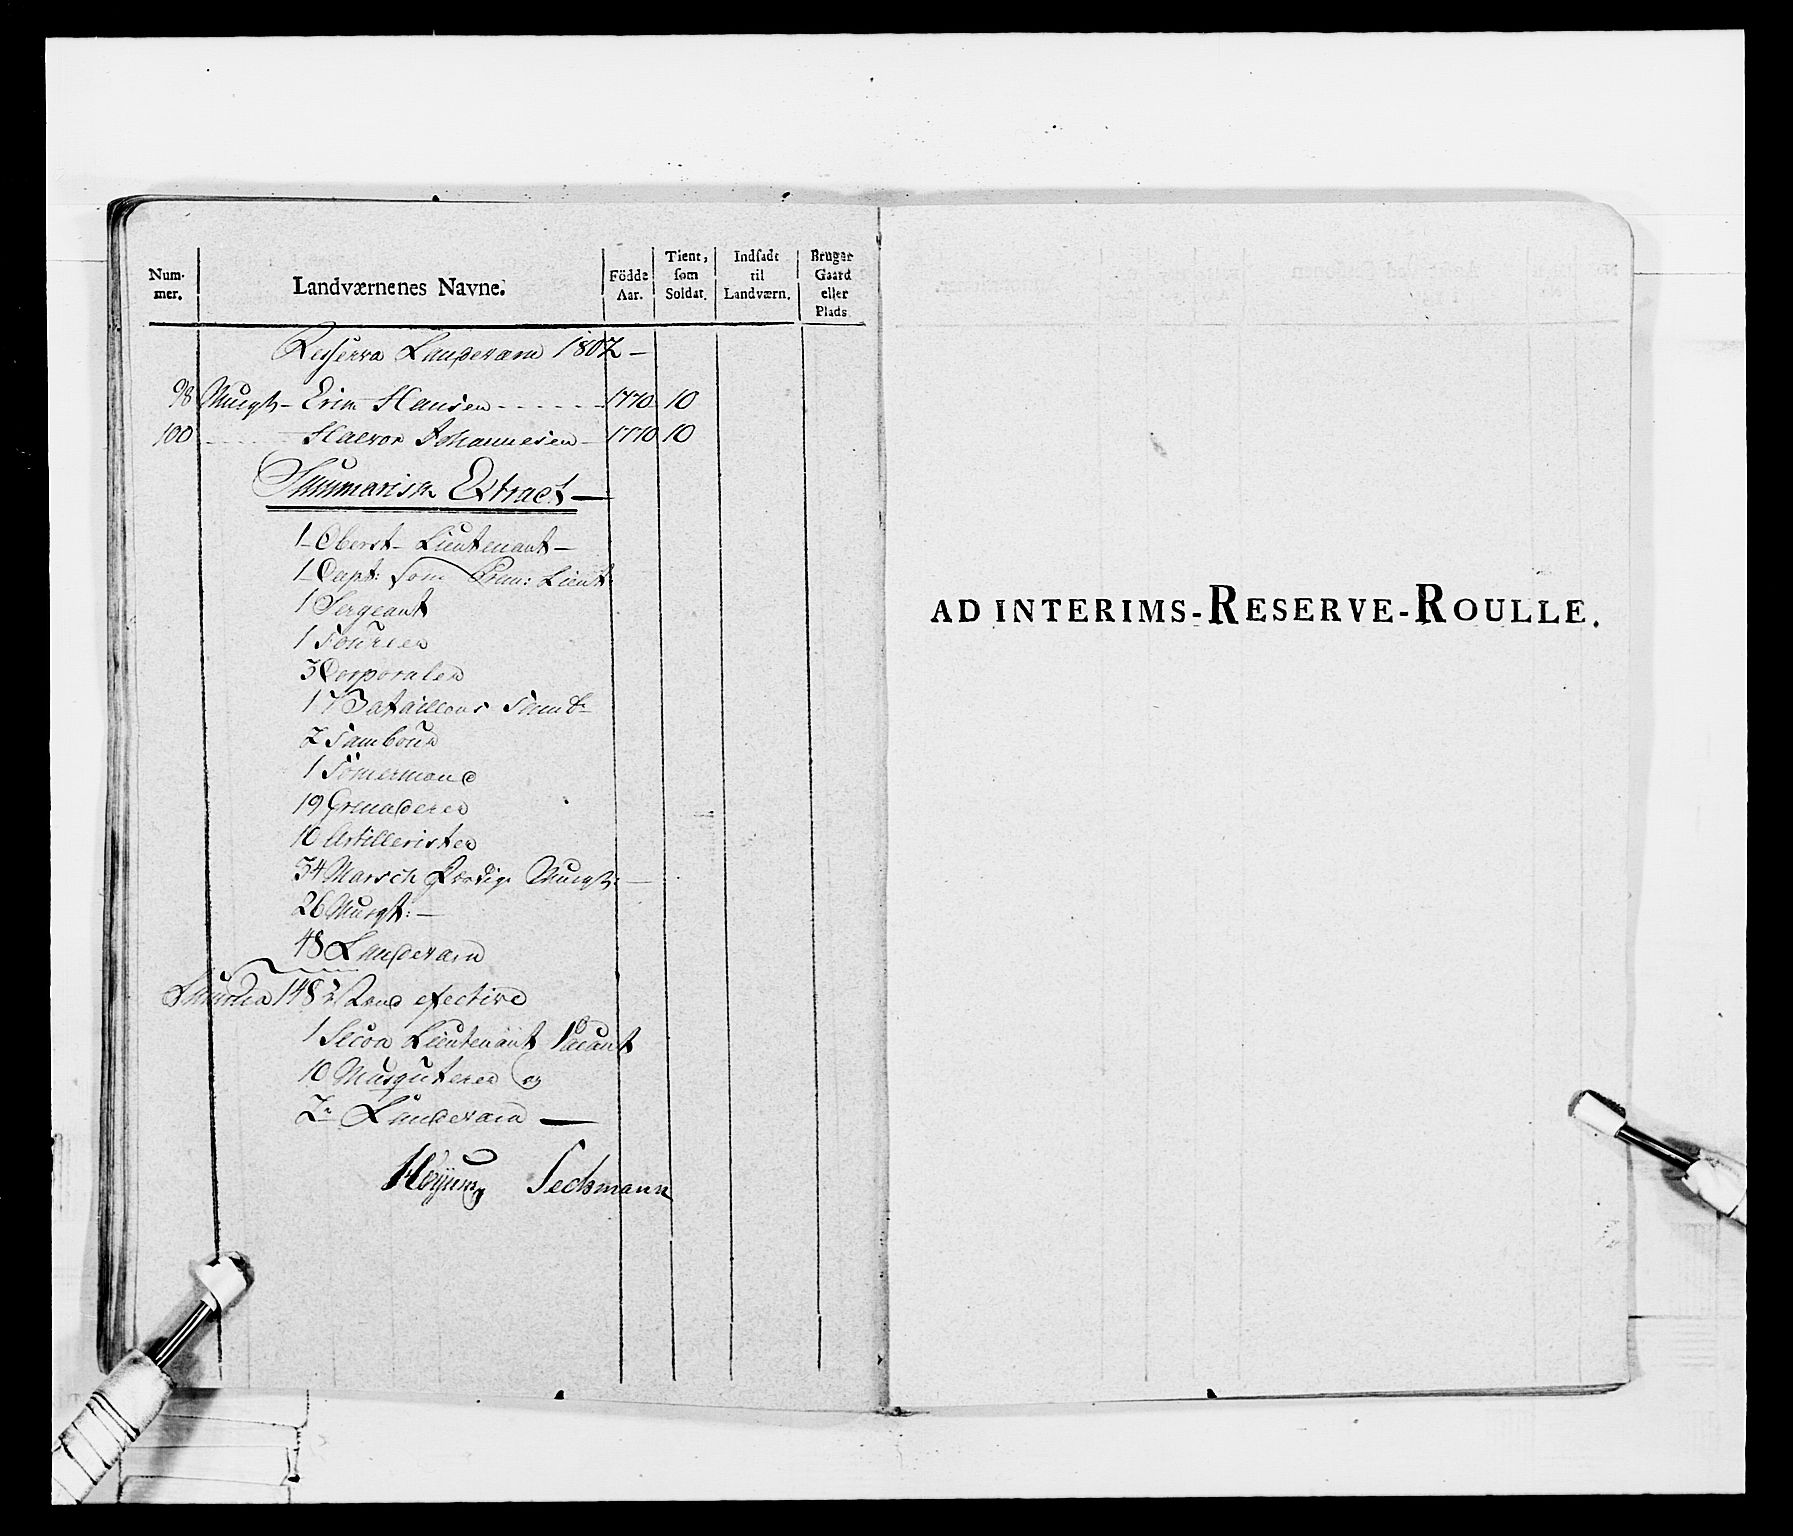 Num- mer.
Landværnenes Navne.
Födde Aar.
Tient, som Soldat.
Indsadt til Landværn.
Bruger Gaard eller Plads
Resserva Landeværn 1802 —
98 Musqt. Erik Hansen - - - - 1770 10
100 - - - Halvor Johannesen - 1770 10
Summarisk Extract —
1 Oberst Lieutenant —
1 Capt: som Prem: Lieut:
1 Sergeant
1 Fourier
3 Corporaler
1 Batailions
2 Tambour
1 Tömermand
19 Grenaderer
10 Artillerister
34 Marsch færdige Musqt: —
26 Musqt: —
48 Landeværn
Summa 148 Mand efective
1 Secon Lieutenant Vacant
10 Musquterer og
2 Landeværn —
Seckmann
AD INTERIMS-RESERVE-ROULLE.